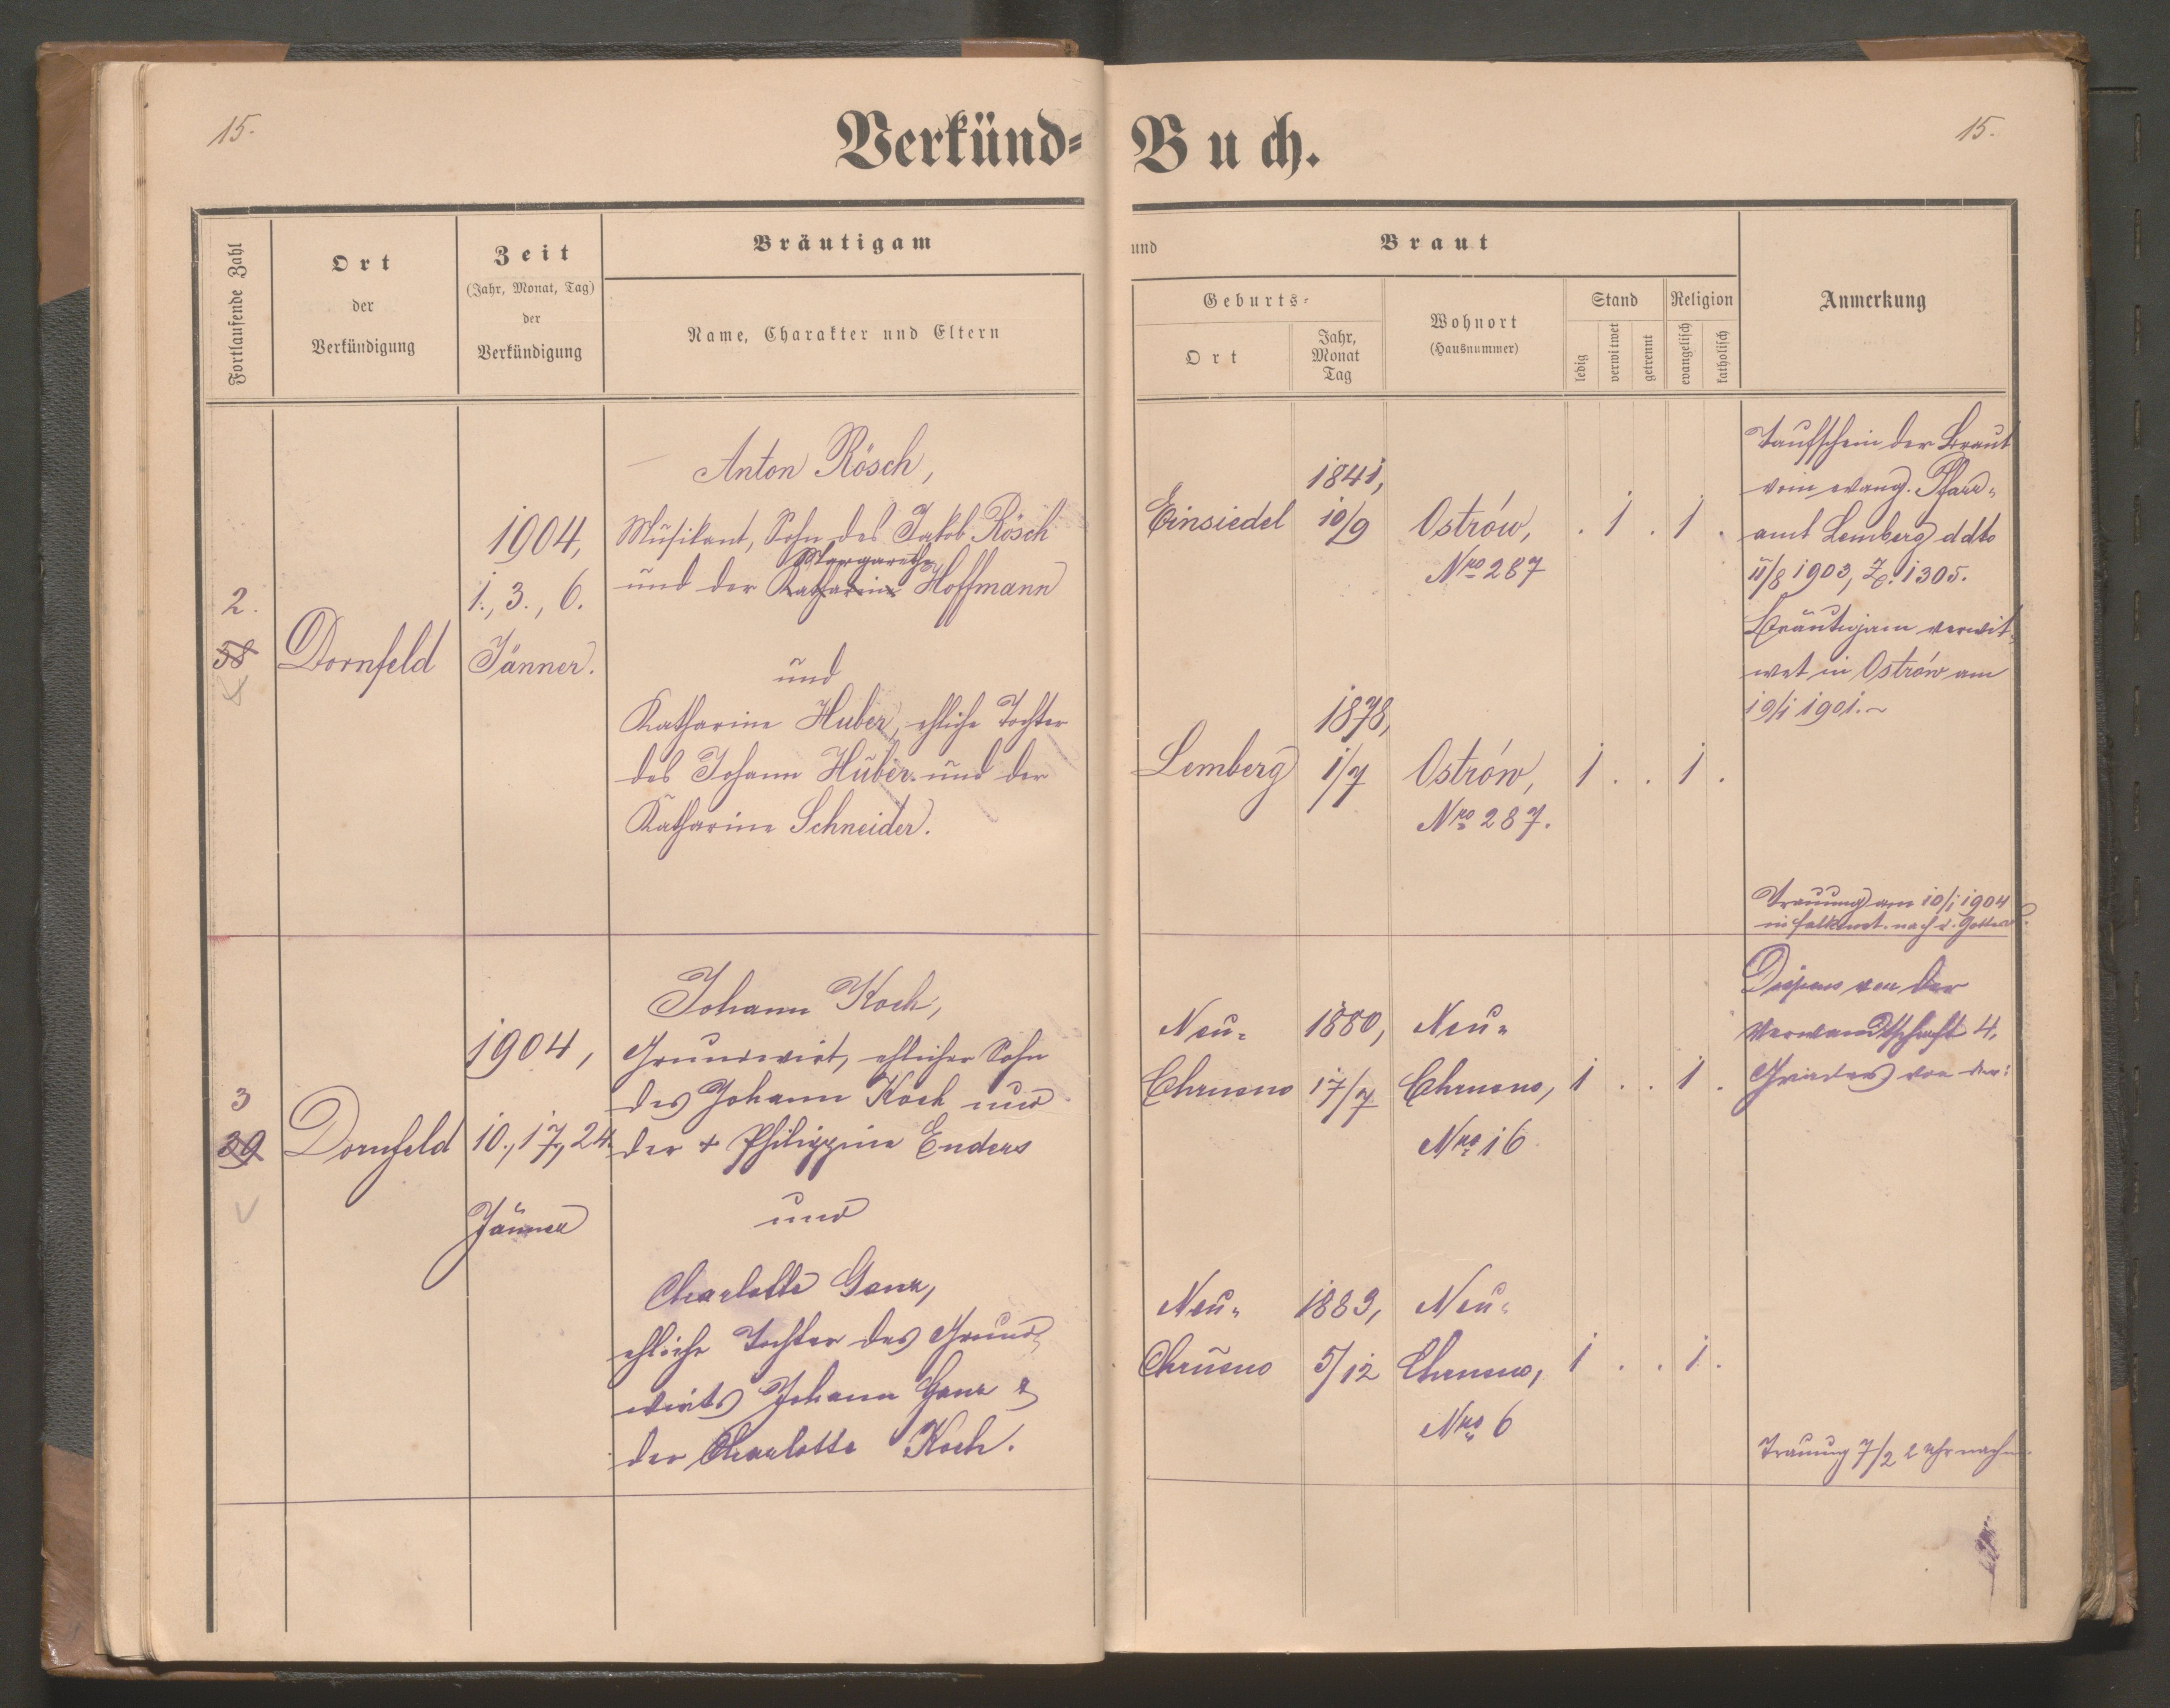 15.
Verkünd-
Buch.
15.
Fortlaufende Zahl
Ort
der
Verkündigung
Zeit
(Jahr, Monat, Tag)
der
Verkündigung
Bräutigam
Name, Charakter und Eltern
und
Braut
Geburts-
Ort
Jahr,
Monat
Tag
Wohnort
(Hausnummer)
Stand
ledig
verwitwet
getrennt
Religion
evangelisch
katholisch
Anmerkung
2.
58
Dornfeld
1904,
1., 3., 6.
Jänner.
Anton Rösch,
Musikant, Sohn des Jakob Rösch
Margarethe
und der Katharina Hoffmann
und
Katharine Huber, ehliche Tochter
des Johann Huber und der
Katharine Schneider.
Einsiedel
1841,
10/9
Ostrów,
Nro 287
. 1 . 1 .
Lemberg
1878,
1/7
Ostrów,
Nro 287.
1 . . 1 .
Taufschein der Braut
vom evang. Pfarr-
amt Lemberg ddto
11/8 1903, Z. 1305.
Bräutigam verwit-
wet in Ostrów am
19/1 1901.
Trauung am 10/1 1904
in nach d.
3
39
Dornfeld
1904,
10., 17., 24.
Jänner
Johann Koch,
Grundwirt, ehlicher Sohn
des Johann Koch und
der + Philippine Enders
und
Charlotte Ganz,
ehliche Tochter des Grund-
wirts Johann Ganz &
der Charlotte Koch.
Neu-
Chrusno
1880,
17/7
Neu-
Chrusno,
Nro 16
1 . . 1 .
Neu-
Chrusno
1883,
5/12
Neu-
Chrusno,
Nro 6
1 . . 1 .
Dispens von der
Verwandtschaft 4.
Grades von der:
Trauung 7/2 2 Uhr nachm.